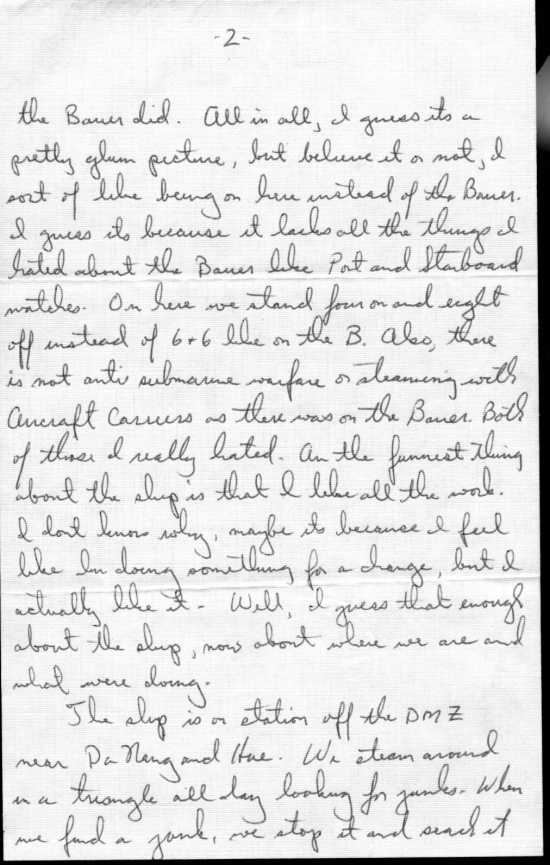 -2-
the Bauer did. All in all, I guess its a
pretty glum picture, but believe it or not, I
sort of like being on here instead of the Bauer.
I guess its because it lacks all the things I
hated about the Bauer like Port and Starboard
watches. On here we stand four on and eight
off instead of 6+6 like on the B. Also, there
is not anti submarine warfare or steaming with
Aircraft Carriers as there was on the Bauer. Both
of those I really hated. An the funniest thing
about the ship is that I like all the work.
I dont know why, maybe its because I feel
like Im doing something for a change, but I
actually like it - Well, I guess that enough
about the ship, now about where we are and
what were doing.
The ship is on station off the DMZ
near Da Nang and Hue. We steam around
in a triangle all day looking for junks. When
we find a junk, we stop it and search it